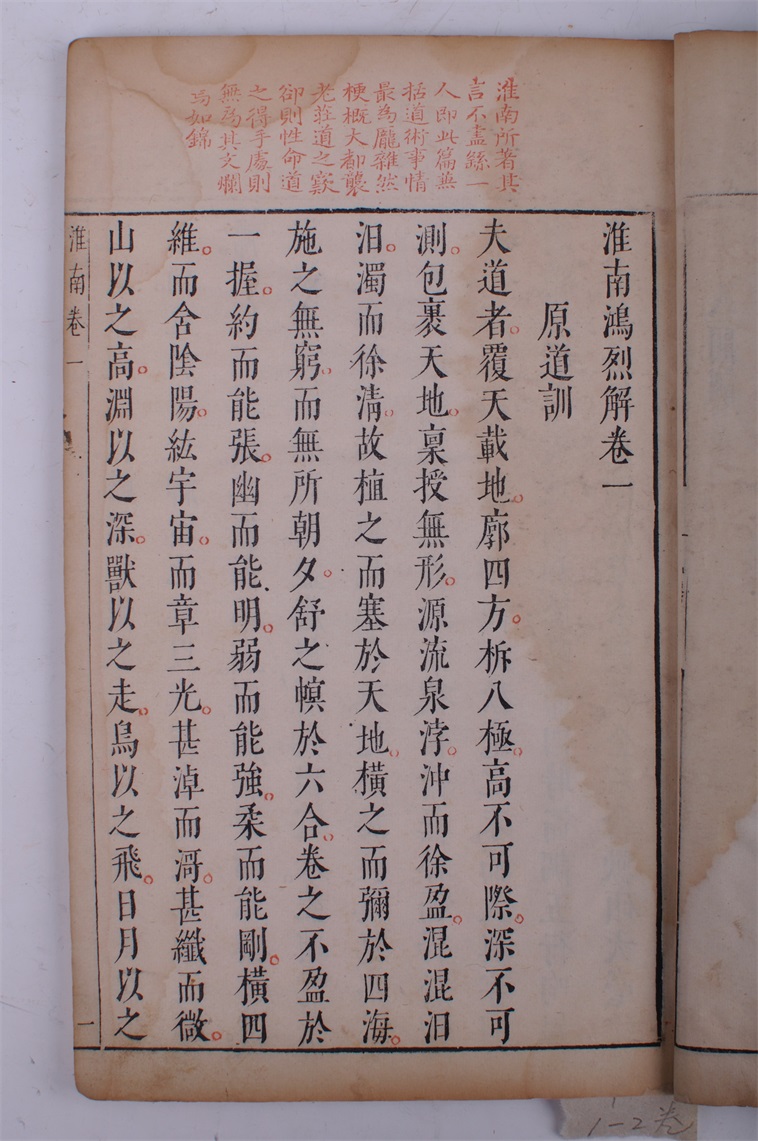 淮南所著其
言不盡繇一
人即此篇無
括道術事情
最為龐雜然
梗概大都襲
老莊道之竅
卻則性命道
之得手處則
無為其文爛
焉如錦
淮南鴻烈解卷一
原道訓
夫道者覆天載地。廓四方。柝八極。高不可際。深不可
測。包裹天地。稟授無形。源流泉浡。沖而徐盈。混混汩
汩。濁而徐清。故植之而塞於天地。橫之而彌於四海。
施之無窮。而無所朝夕。舒之幎於六合。卷之不盈於
一握。約而能張。幽而能明。弱而能強。柔而能剛。橫四
維。而含陰陽。紘宇宙。而章三光。甚淖而滒。甚纖而微。
山以之高。淵以之深。獸以之走。鳥以之飛。日月以之
淮南卷一
一
1-2卷